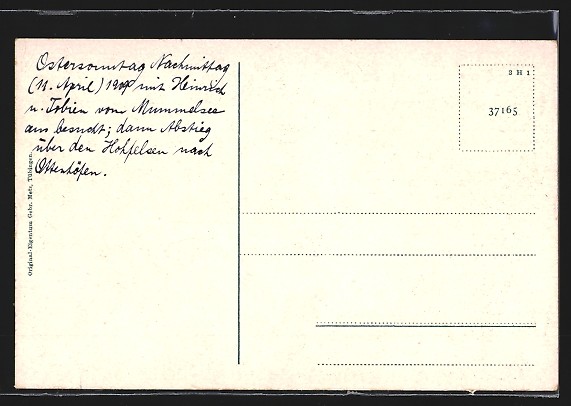 Ostersonntag Nachmittag
(11. April) 19 mit Heinrich
u. Tobien vom Mummelsee
aus besucht; dann Abstieg
über den Hohfelsen nach
Ottenhöfen.
Original-Eigentum Gebr. Metz, Tübingen.
2 H 1
37165